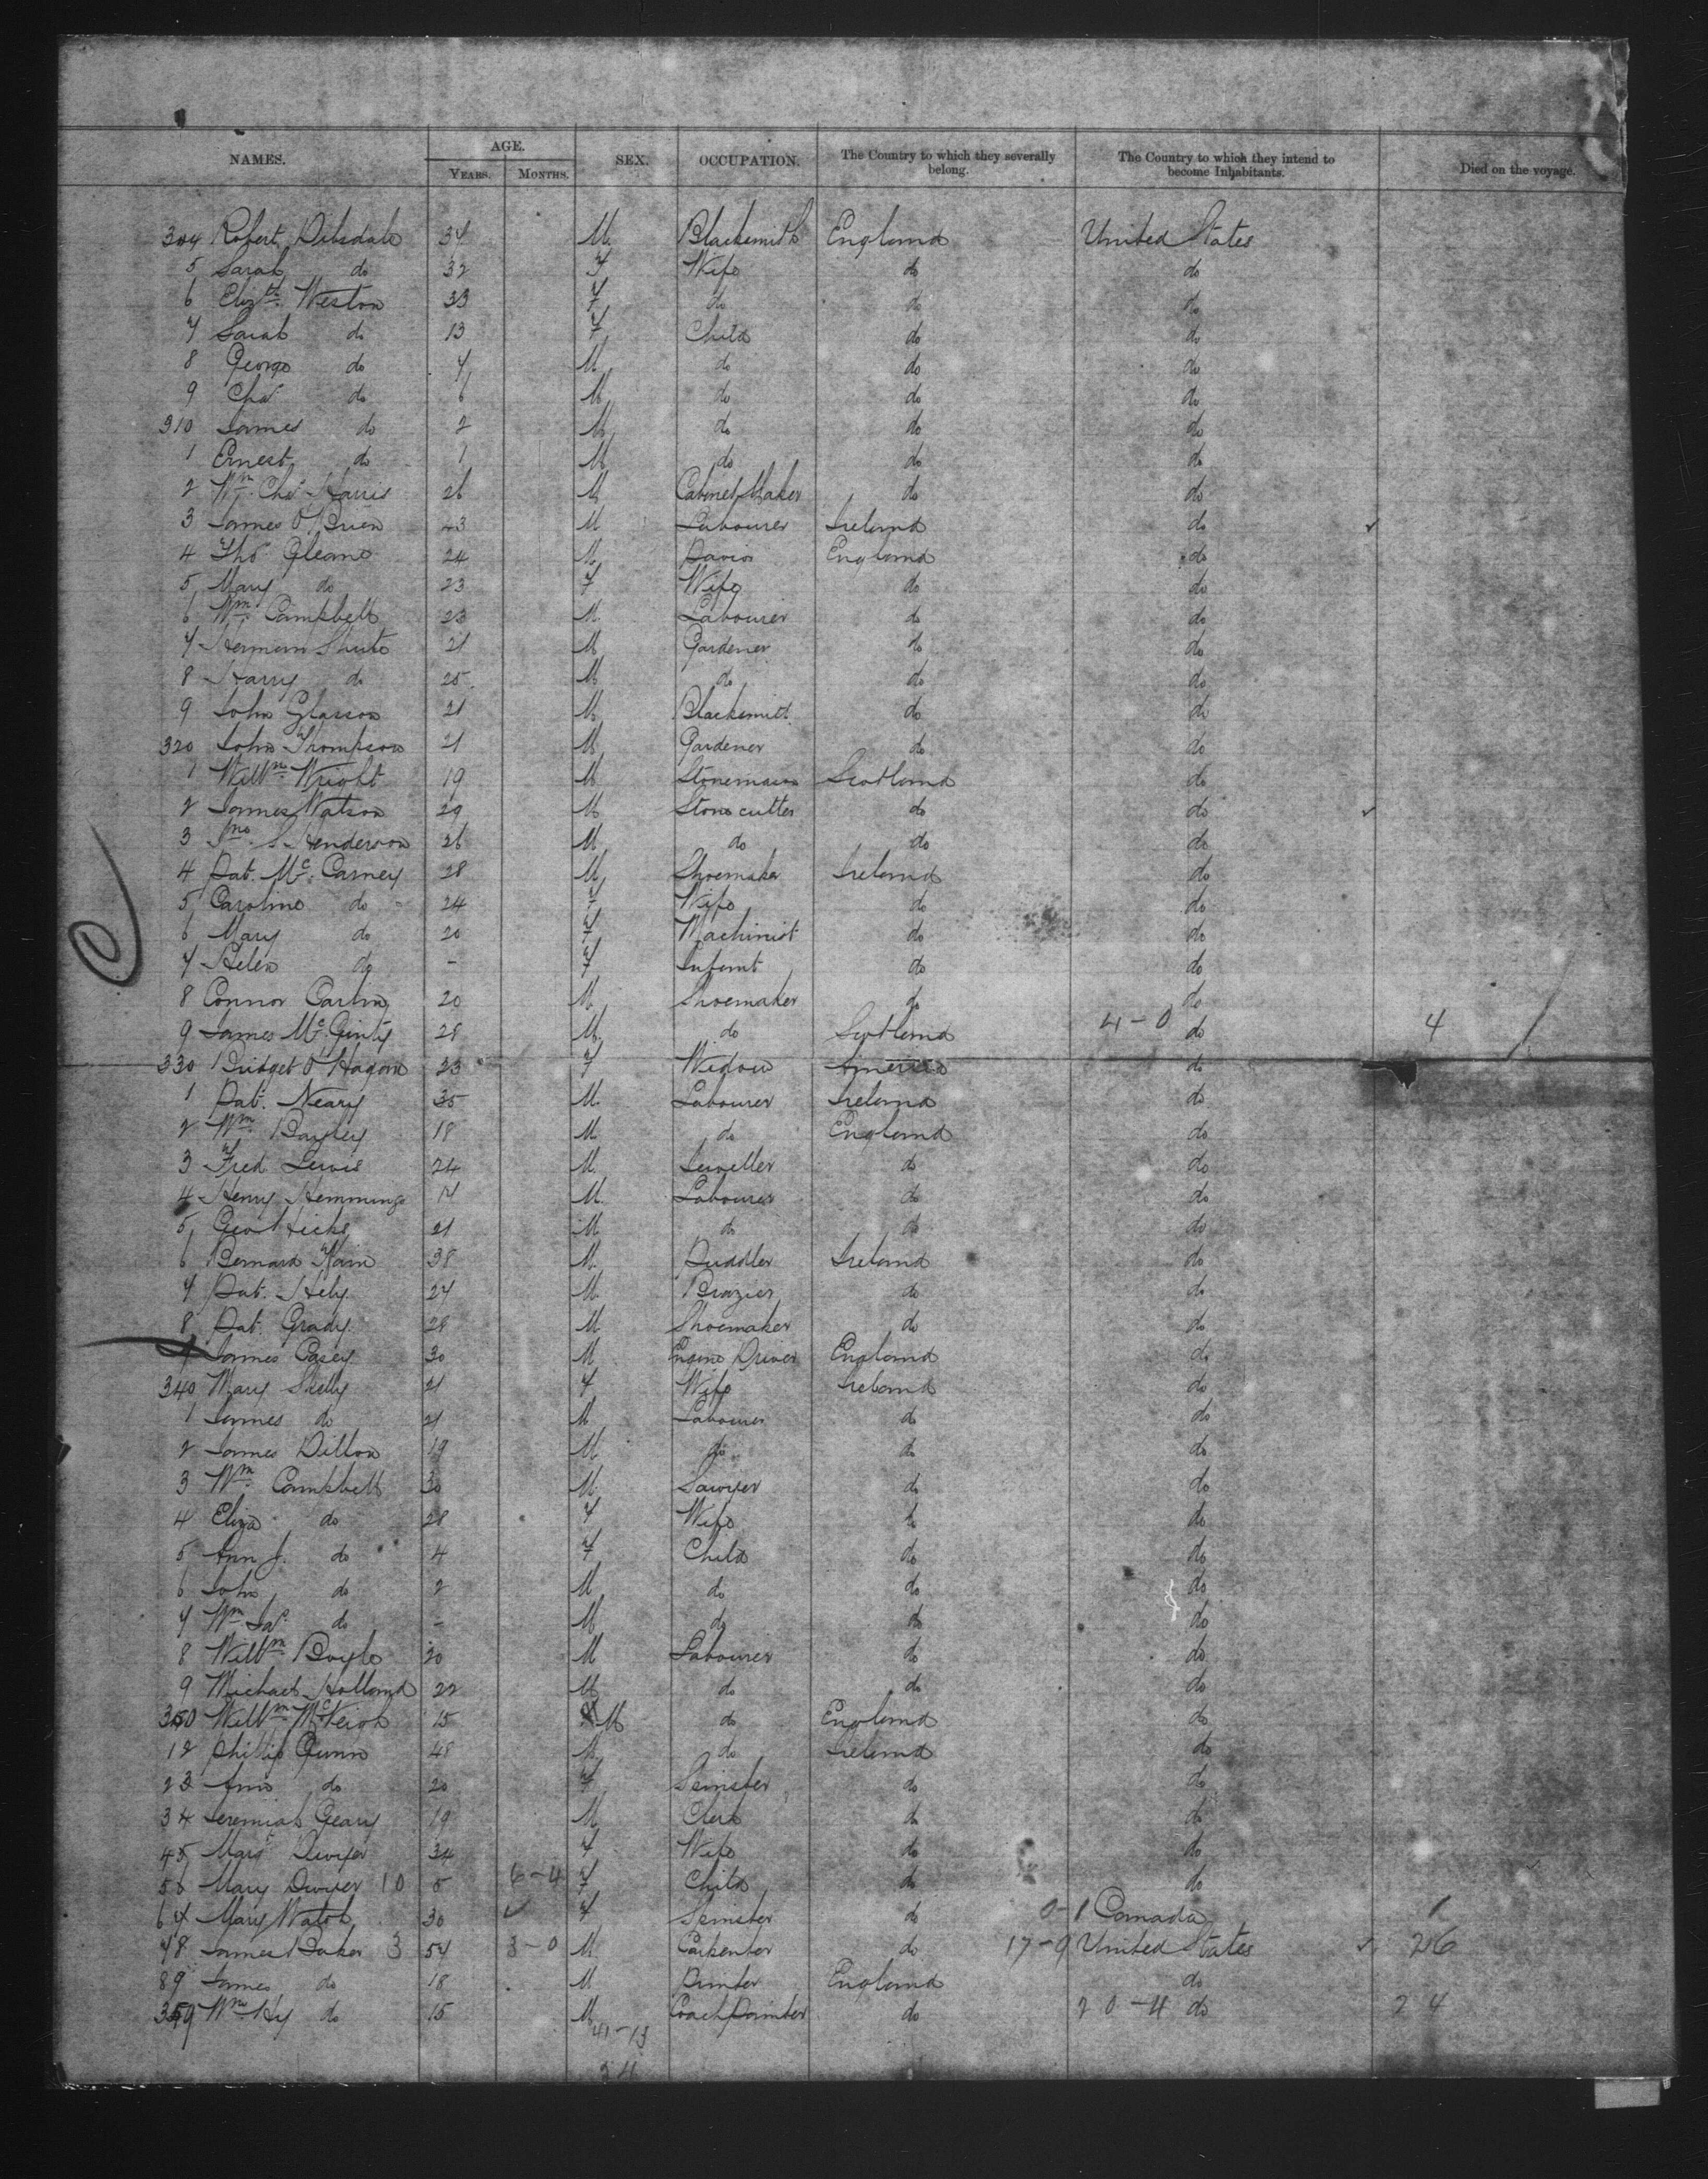 NAMES. AGE. SEX. OCCUPATION. The Country to which they severally belong. The Country to which they intend to become Inhabitants. Died on the voyage.
YEARS. MONTHS.
304 Robert Dibsdale 34 M Blacksmith England United States
5 Sarah do 32 F Wife do do
6 Elizth Weston 33 F do do do
7 Sarah do 13 F Child do do
8 George do 7 M do do do
9 Chas do 6 M do do do
310 James do 2 M do do do
1 Ernest do 1 M do do do
2 Wm Chs Harris 26 M Cabinet Maker do do
3 James O'Brien 43 M Labourer Ireland do
4 Thos Gleane 24 M Pavior England do
5 Mary do 23 F Wife do do
6 Wm Campbell 23 M Labourer do do
7 Herman Shute 21 M Gardener do do
8 Harry do 25 M do do do
9 John Glasson 21 M Blacksmith do do
320 John Thompson 21 M Gardener do do
1 Willm Wright 19 M Stonemason Scotland do
2 James Watson 29 M Stone cutter do do
3 Jno S. Henderson 26 M do do do
4 Pat. McCarney 28 M Shoemaker Ireland do
5 Caroline do 24 F Wife do do
6 Mary do 20 F Machinist do do
7 Helen do - F Infant do do
8 Connor Carlin 20 M Shoemaker do do
9 James McGinty 28 M do Scotland 4-0 do 4
330 Bridget O'Hagan 23 F Widow America do
1 Pat. Neary 35 M Labourer Ireland do
2 Wm Bayley 18 M do England do
3 Fred Lewis 24 M Jeweller do do
4 Henry Hemmings 17 M Labourer do do
5 Geo Hicks 21 M do do do
6 Bernard Kain 38 M Puddler Ireland do
7 Pat. Hely 24 M Brazier do do
8 Pat. Grady 28 M Shoemaker do do
James Casey 30 M Engine Driver England do
340 Mary Skelly 21 F Wife Ireland do
1 James do 21 M Labourer do do
2 James Dillon 19 M do do do
3 Wm Campbell 30 M Sawyer do do
4 Eliza do 28 F Wife do do
5 Ann J. do 4 F Child do do
6 John do 2 M do do do
7 Wm Jas do - M do do do
8 Willm Boyle 20 M Labourer do do
9 Michael Holland 22 M do do do
350 Willm McVeigh 15 M do England do
12 Phillip Quinn 48 M do Ireland do
23 Ann do 20 F Spinster do do
34 Jeremiah Geary 19 M Clerk do do
45 Margt Dwyer 34 F Wife do do
56 Mary Dwyer 10 5 6-4 F Child do do
67 Mary Walsh 30 F Spinster do 0-1 Canada 1
78 James Baker 3 54 3-0 M Carpenter do 17-9 United States 26
89 James do 18 M Printer England do
359 Wm Hy do 15 M Coach Painter do 20-4 do 24
41-13